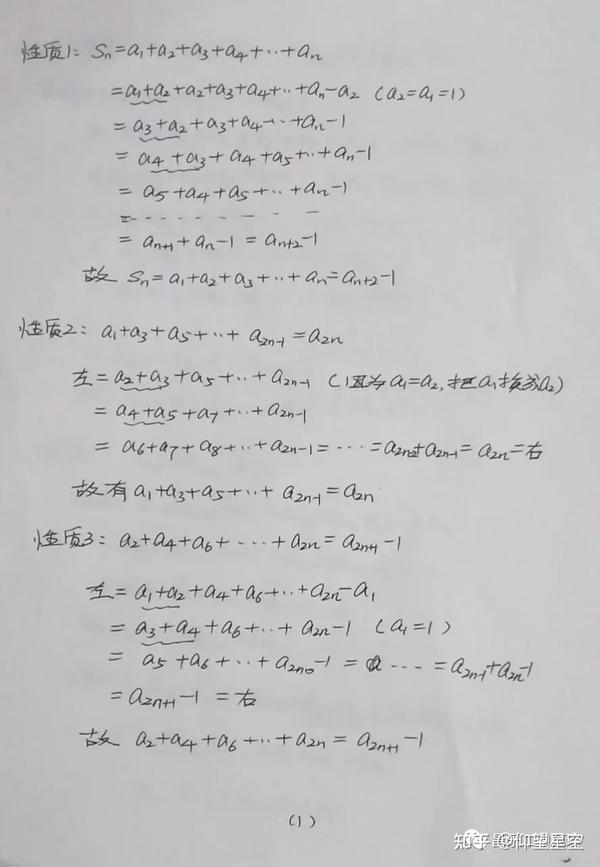 性质1: Sn=a₁+a₂+a₃+a₄+‥+aₙ
=a₁+a₂+a₂+a₃+a₄+‥+aₙ-a₂ (a₂=a₁=1)
=a₃+a₂+a₃+a₄+‥+aₙ-1
=a₄+a₃+a₄+a₅+‥+aₙ-1
=a₅+a₄+a₅+‥+aₙ-1
=--------
=aₙ₊₁+aₙ-1=aₙ₊₂-1
故 Sn=a₁+a₂+a₃+‥+aₙ=aₙ₊₂-1
性质2: a₁+a₃+a₅+‥+a₂ₙ₋₁=a₂ₙ
左=a₂+a₃+a₅+‥+a₂ₙ₋₁ (因为a₁=a₂,把a₁换为a₂)
=a₄+a₅+a₇+‥+a₂ₙ₋₁
=a₆+a₇+a₈+‥+a₂ₙ₋₁=‥‥=a₂ₙ₋₂+a₂ₙ₋₁=a₂ₙ=右
故有a₁+a₃+a₅+‥+a₂ₙ₋₁=a₂ₙ
性质3: a₂+a₄+a₆+‥‥+a₂ₙ=a₂ₙ₊₁-1
左=a₁+a₂+a₄+a₆+‥+a₂ₙ-a₁
=a₃+a₄+a₆+‥+a₂ₙ-1 (a₁=1)
=a₅+a₆+‥+a₂ₙ-1=‥‥=a₂ₙ₋₁+a₂ₙ-1
=a₂ₙ₊₁-1=右
故 a₂+a₄+a₆+‥+a₂ₙ=a₂ₙ₊₁-1
(1)
知乎 @仰望星空